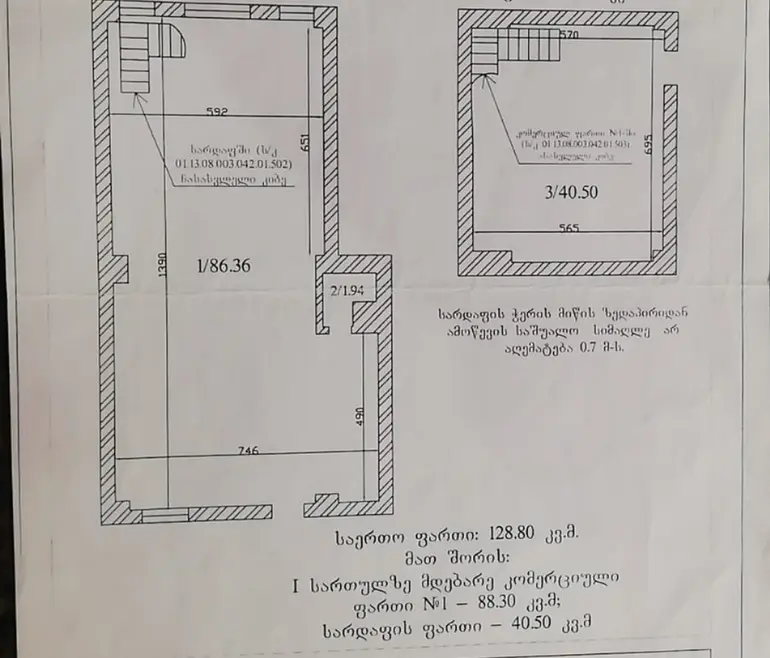 592
651
სარდაფში (ს/კ
01.13.08.003.042.01.502)
ჩასასვლელი კიბე
1390
1/86.36
2/1.94
490
746
570
კომერციულ ფართი №1-ში
(ს/კ 01.13.08.003.042.01.503)
ასასვლელი კიბე
695
3/40.50
565
სარდაფის ჭერის მიწის ზედაპირიდან
ამოწევის საშუალო სიმაღლე არ
აღემატება 0.7 მ-ს.
საერთო ფართი: 128.80 კვ.მ.
მათ შორის:
I სართულზე მდებარე კომერციული
ფართი №1 – 88.30 კვ.მ;
სარდაფის ფართი – 40.50 კვ.მ